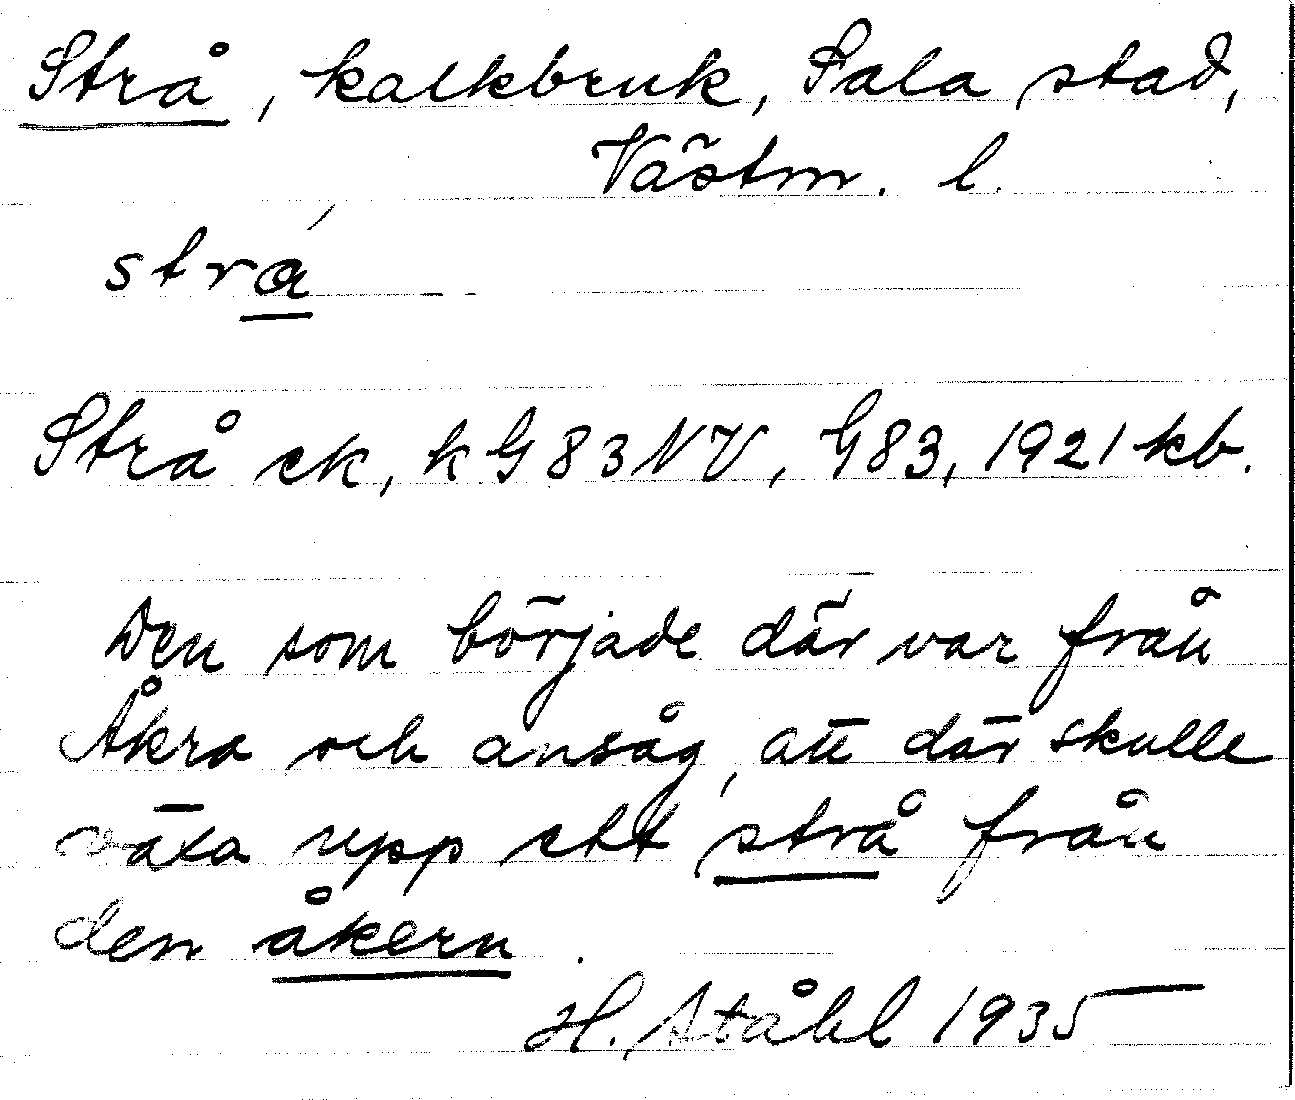 Strå, kalkbruk, Sala stad,
Västm. l.
strα´
Strå ek, kG83NV, G83, 1921 kb.
Den som började där var från
Åkra och ansåg, att där skulle
växa upp ett strå från
den åkern.
H. Ståhl 1935